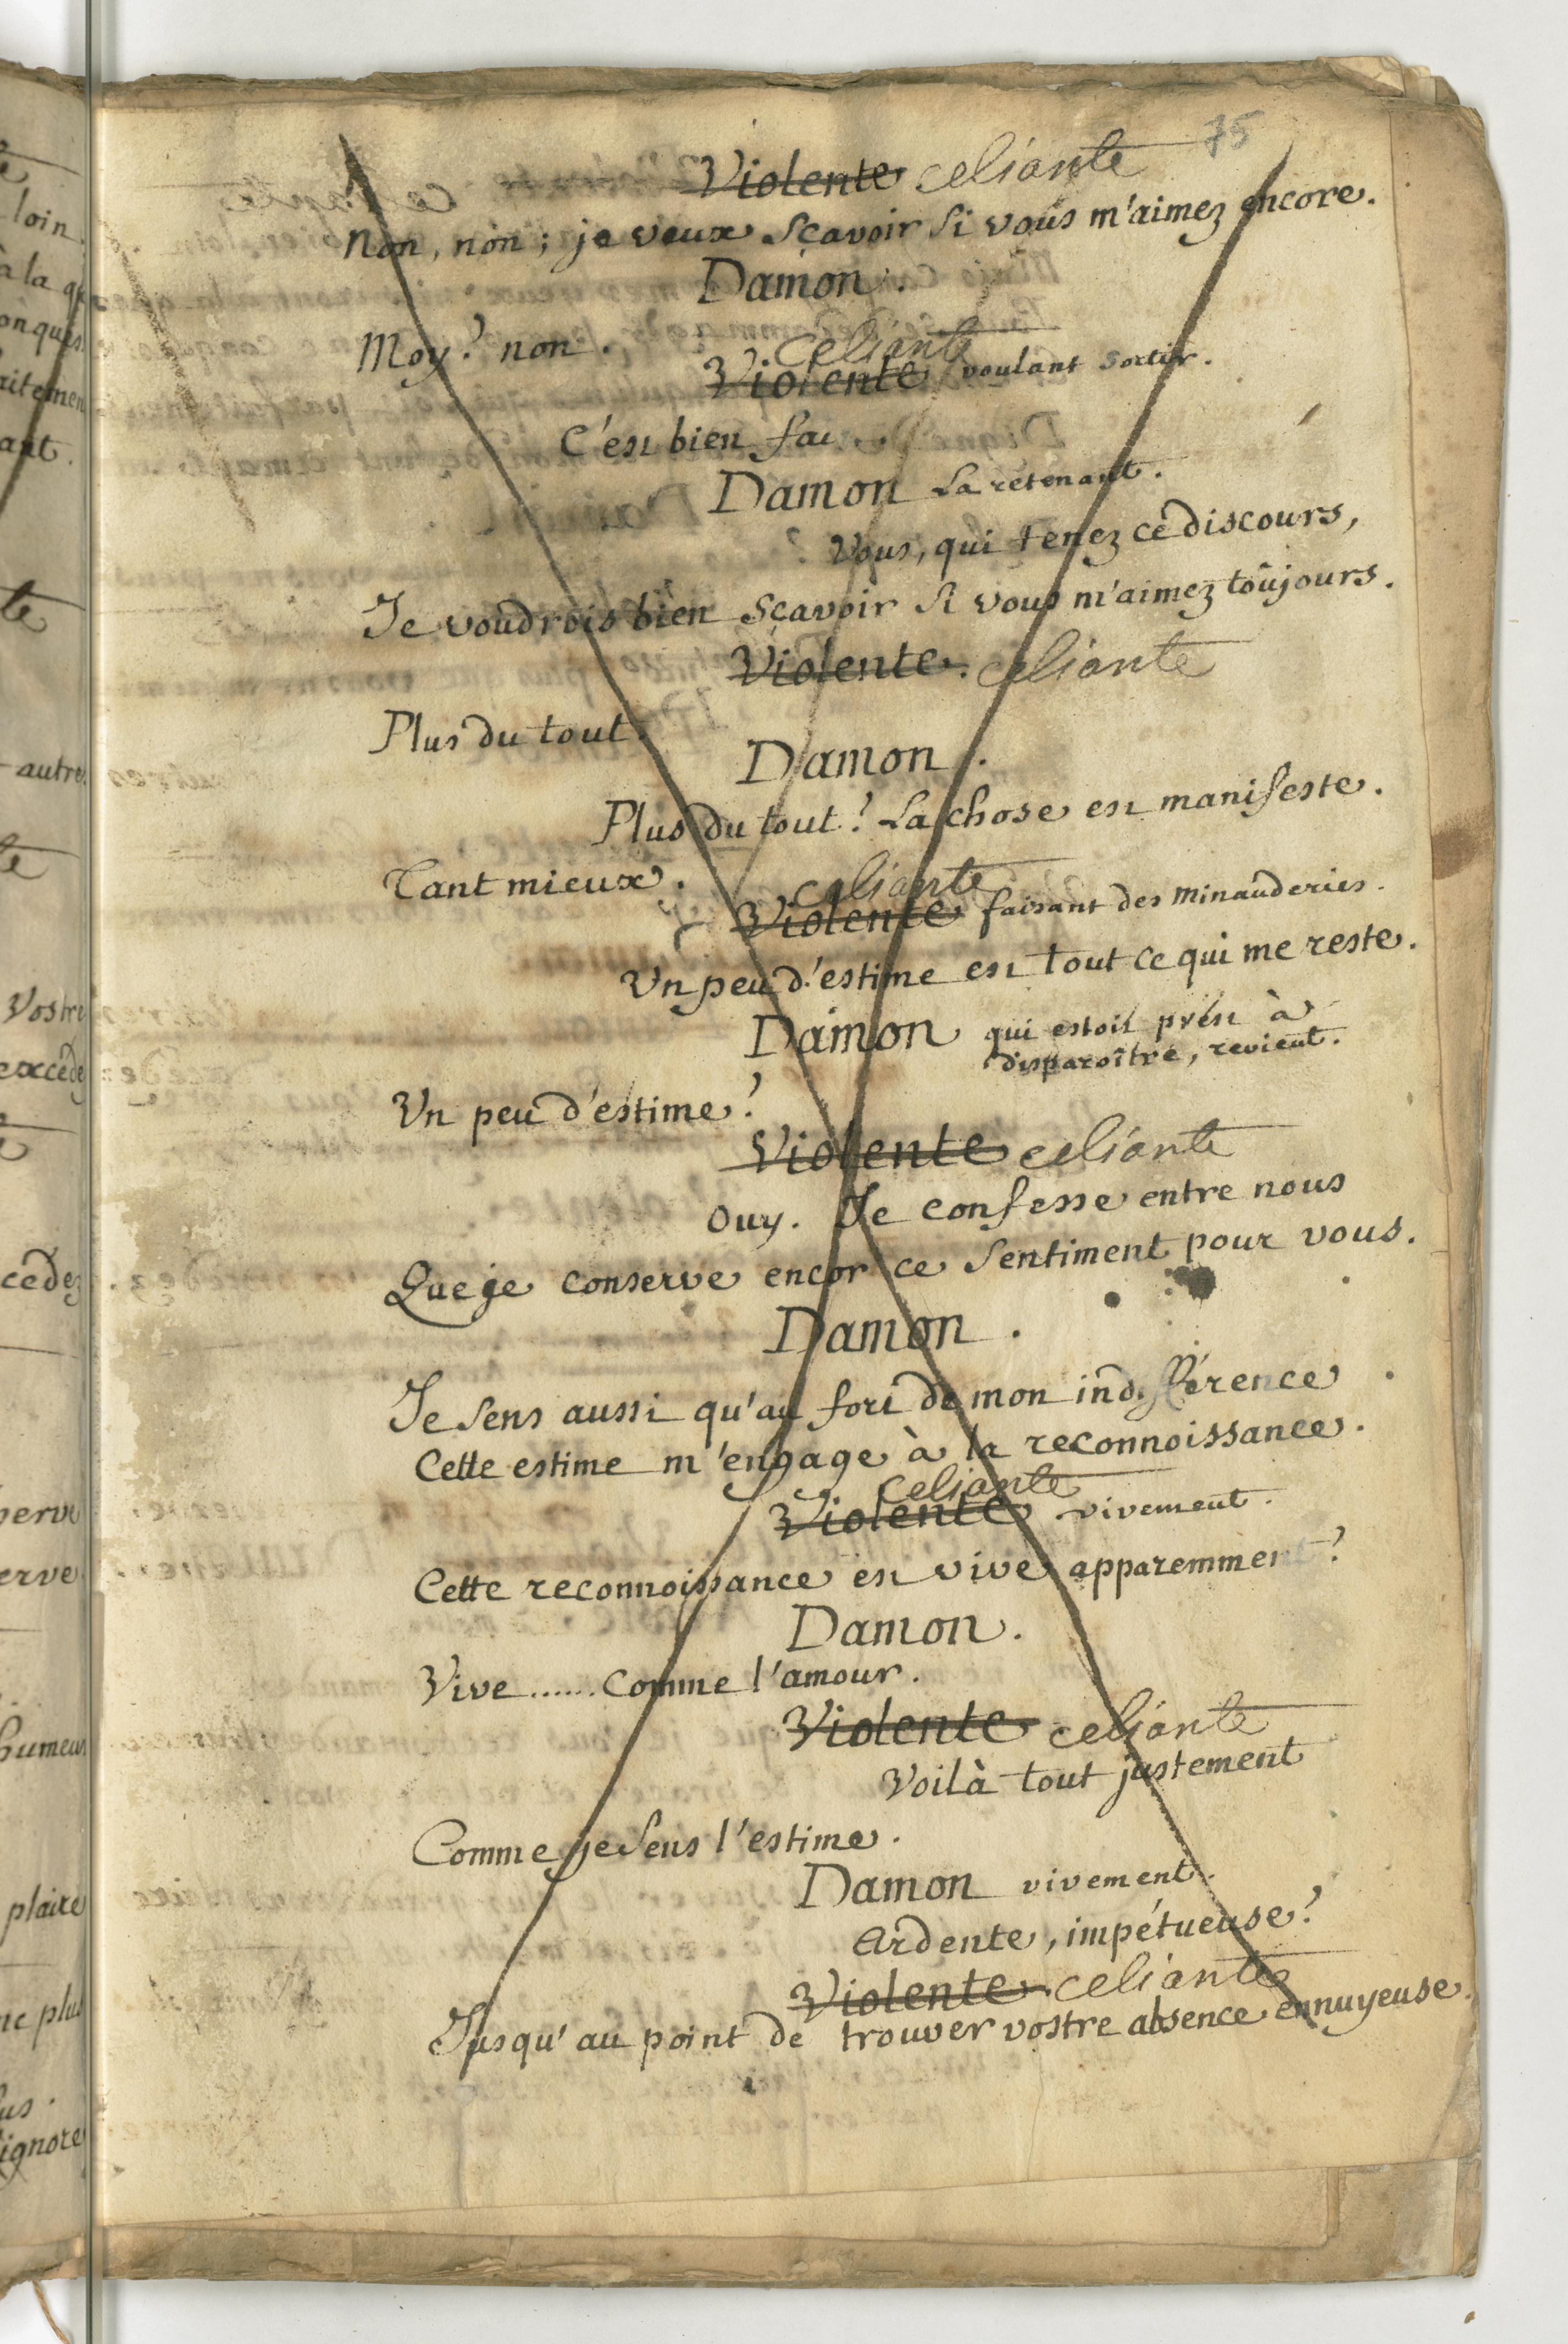 75
Violente celiante
Non, non; je veux sçavoir si vous m'aimez encore.
Damon.
Moy? non.
celiante
Violente voulant sortir.
C'est bien fai
Damon la retenant.
Vous, qui tenez ce discours,
Je voudrois bien sçavoir si vous m'aimez toûjours.
Violente. celiante
Plus du tout.
Damon.
Plus du tout? La chose est manifeste.
Tant mieux.
celiante
Violente faisant des minauderies.
Un peu d'estime est tout ce qui me reste.
Damon qui estoit prést à
disparoître, revient.
Un peu d'estime?
Violente celiante
Ouy. Je confesse entre nous
Que je conserve encor ce sentiment pour vous.
Damon.
Je sens aussi qu'au fort de mon indifférence
Cette estime m'engage à la reconnoissance.
celiante
Violente vivement.
Cette reconnoissance est vive apparemment?
Damon.
Vive...... comme l'amour.
Violente celiante
Voilà tout justement
Comme je sens l'estime.
Damon vivement.
Ardente, impétueuse?
Violente. celiante
Jusqu'au point de trouver vostre absence ennuyeuse.
loin
à la
autre
Vostre
excede
cedez
serve
humeur
plaire
plus
ignore